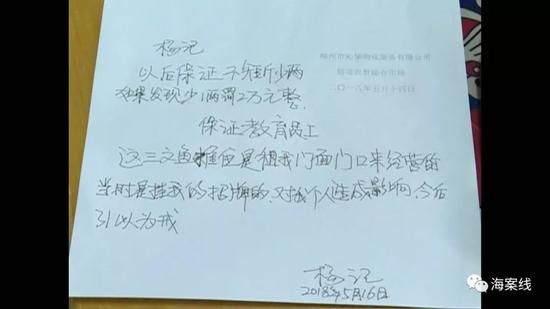 杨记
以后保证不短斤少两
如果发现少1两罚2万元整.
保证教育员工
这三文鱼摊位是租我门面门口来经营的
当时是挂我的招牌的.对我个人造成影响.今后
引以为戒
杨记
2018年5月16日
柳州市
物业服务有限公司
二〇一八年五月十四日
海案线